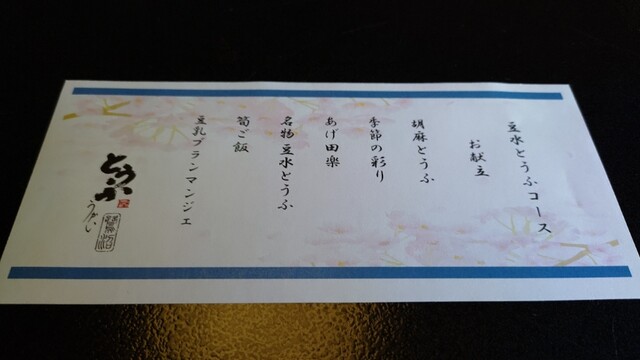 豆水とうふコース
お献立
胡麻とうふ
季節の彩り
あげ田楽
名物豆水とうふ
筍ご飯
豆乳ブランマンジェ
とうふ
うかい